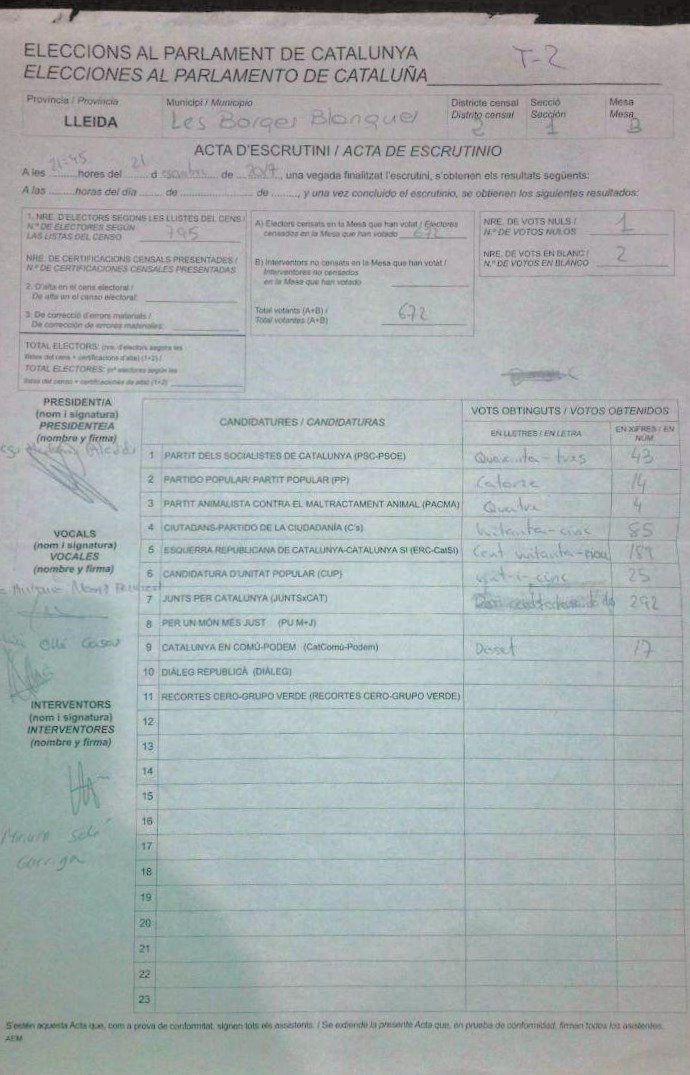 T-2
ELECCIONS AL PARLAMENT DE CATALUNYA
ELECCIONES AL PARLAMENTO DE CATALUÑA
Província / Provincia
LLEIDA
Municipi / Municipio
Les Borges Blanques
Districte censal
Distrito censal
2
Secció
Sección
1
Mesa
Mesa
B
ACTA D'ESCRUTINI / ACTA DE ESCRUTINIO
A les 21:45 hores del 21 d desembre de 2017, una vegada finalitzat l'escrutini, s'obtenen els resultats següents:
A las ......... horas del día ...... de ............... de ........, y una vez concluido el escrutinio, se obtienen los siguientes resultados:
1. NRE. D'ELECTORS SEGONS LES LLISTES DEL CENS /
N.º DE ELECTORES SEGÚN
LAS LISTAS DEL CENSO 795
NRE. DE CERTIFICACIONS CENSALS PRESENTADES /
N.º DE CERTIFICACIONES CENSALES PRESENTADAS
2. D'alta en el cens electoral /
De alta en el censo electoral:
3. De correcció d'errors materials /
De corrección de errores materiales:
TOTAL ELECTORS: (nre. d'electors segons les
llistes del cens + certificacions d'alta) (1+2) /
TOTAL ELECTORES: (nº electores según las
listas del censo + certificaciones de alta) (1+2)
A) Electors censats en la Mesa que han votat / Electores
censados en la Mesa que han votado 672
B) Interventors no censats en la Mesa que han votat /
Interventores no censados
en la Mesa que han votado
Total votants (A+B) /
Total votantes (A+B) 672
NRE. DE VOTS NULS /
N.º DE VOTOS NULOS 1
NRE. DE VOTS EN BLANC /
N.º DE VOTOS EN BLANCO 2
PRESIDENT/A
(nom i signatura)
PRESIDENTE/A
(nombre y firma)
VOCALS
(nom i signatura)
VOCALES
(nombre y firma)
INTERVENTORS
(nom i signatura)
INTERVENTORES
(nombre y firma)
CANDIDATURES / CANDIDATURAS
VOTS OBTINGUTS / VOTOS OBTENIDOS
EN LLETRES / EN LETRA
EN XIFRES / EN NÚM.
1 PARTIT DELS SOCIALISTES DE CATALUNYA (PSC-PSOE) Quaranta-tres 43
2 PARTIDO POPULAR/ PARTIT POPULAR (PP) Catorze 14
3 PARTIT ANIMALISTA CONTRA EL MALTRACTAMENT ANIMAL (PACMA) Quatre 4
4 CIUTADANS-PARTIDO DE LA CIUDADANÍA (C's) Vuitanta-cinc 85
5 ESQUERRA REPUBLICANA DE CATALUNYA-CATALUNYA SÍ (ERC-CatSí) Cent vuitanta-nou 189
6 CANDIDATURA D'UNITAT POPULAR (CUP) vint-i-cinc 25
7 JUNTS PER CATALUNYA (JUNTSxCAT) 292
8 PER UN MÓN MÉS JUST (PU M+J)
9 CATALUNYA EN COMÚ-PODEM (CatComú-Podem) Disset 17
10 DIÀLEG REPUBLICÀ (DIÀLEG)
11 RECORTES CERO-GRUPO VERDE (RECORTES CERO-GRUPO VERDE)
12
13
14
15
16
17
18
19
20
21
22
23
S'estén aquesta Acta que, com a prova de conformitat, signen tots els assistents. / Se extiende la presente Acta que, en prueba de conformidad, firman todos los asistentes.
AEM